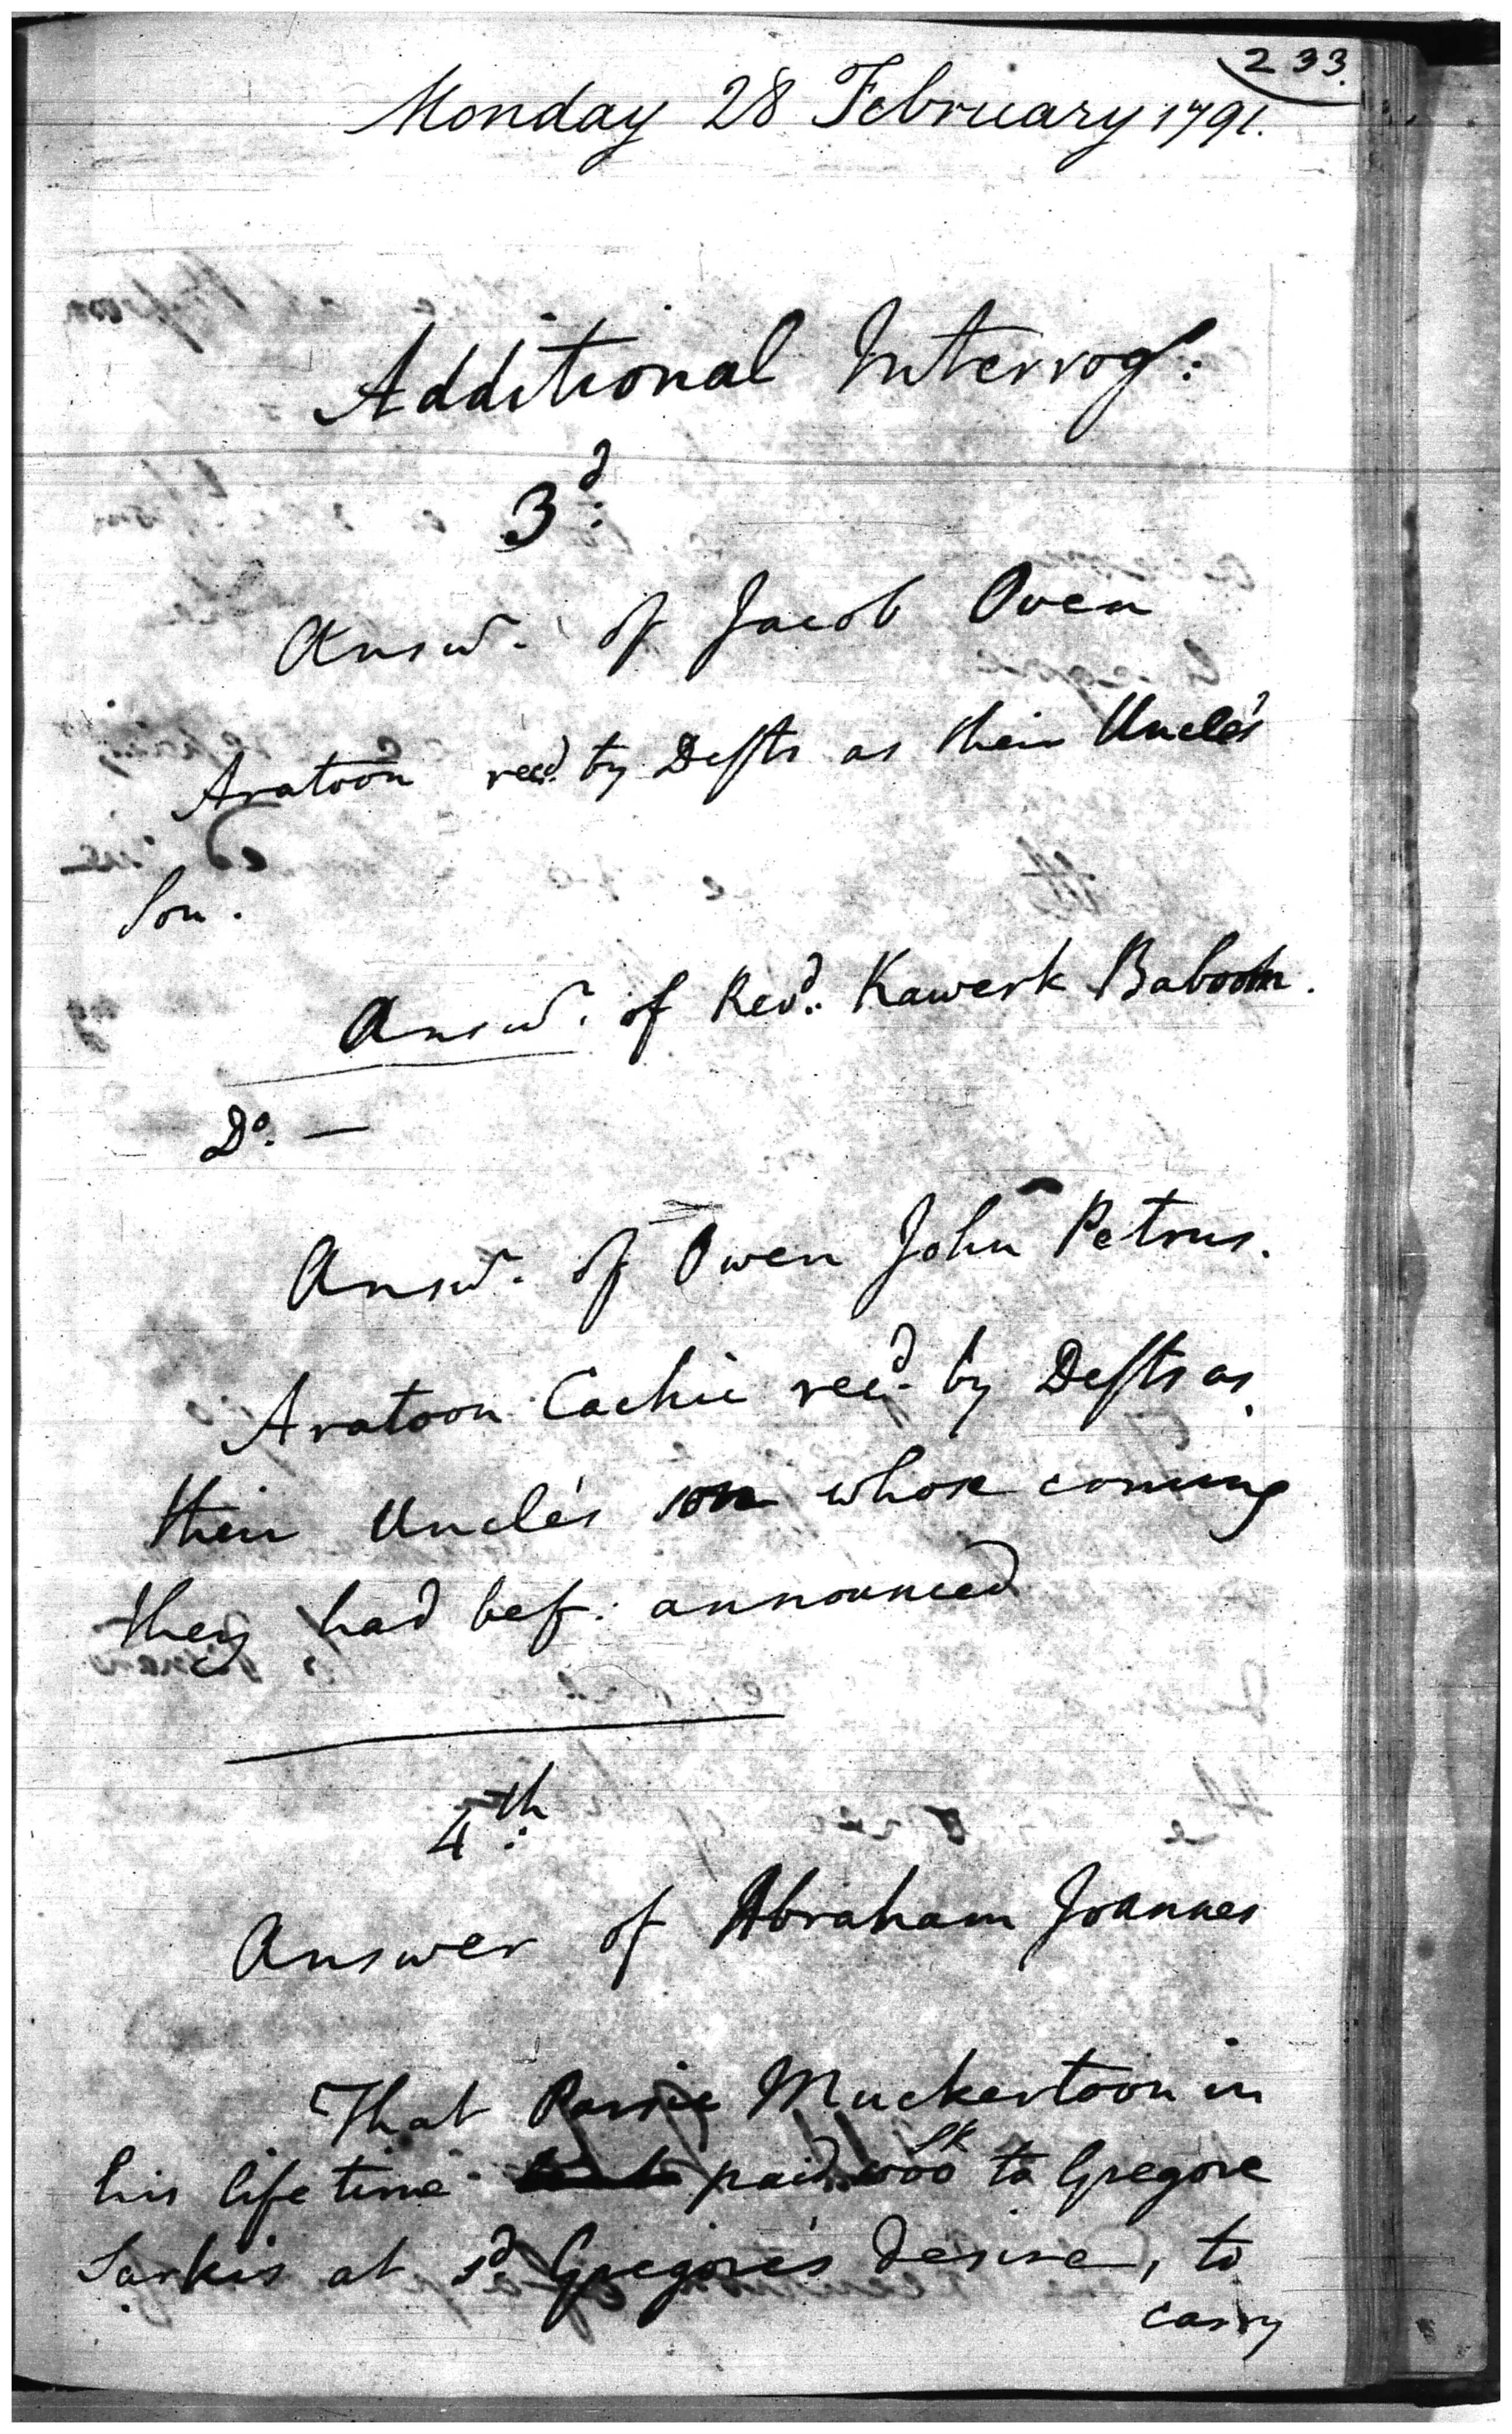 233.
Monday 28 February 1791.
Additional Interrog:
3d:
Answr. of Jacob Owen
Aratoon recd. by Defts as their Uncle's
Son.
Answr. of Revd. Kawerk Baboom.
Do. —
Answr. of Owen John Petrus.
Aratoon Cachic recd. by Defts as
their Uncle's son whose coming
they had bef: announced
4th:
Answer of Abraham Joannes
That Muckertoon in
his life time paid to Gregore
Sarkis at sd. Gregore's desire, to
carry